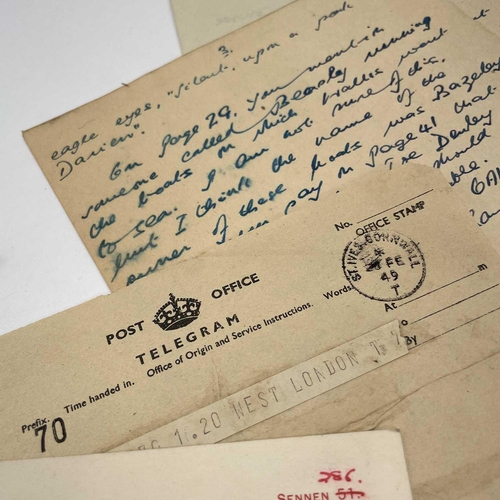 3.
eagle eyes, "silent, upon a peak
Darien".
On page 29. you mention
someone called Beardy running
the boats in which Wallis went
to sea. I am not sure of this,
but I think the name of the
owner of these boats was Bazeley
you say on Page 41 that
The Denley
should
No.
OFFICE STAMP
ST. IVES. CORNWALL
FE
49
T
POST OFFICE
TELEGRAM
Prefix. Time handed in. Office of Origin and Service Instructions. Words.
At
m
By
70
1.20 WEST LONDON T 7
SENNEN 51.